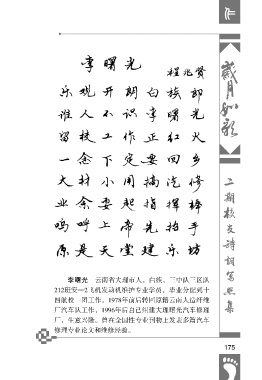 李曙光
程兆贤
乐观开朗白族郎
谁人不识李曙光
留校工作正红火
一念下定要回乡
大材小用搞汽修
业余要起指挥棒
呜呼上帝先招手
原是天堂建乐坊
李曙光 云南省大理市人,白族、三中队三区队
212班安—2飞机发动机维护专业学员,毕业分配到十
四航校一团工作。1978年前后转回原籍云南人造纤维
厂汽车队工作,1996年后自己组建大理曙光汽车修理
厂,生意兴隆。曾在全国性专业刊物上发表多篇汽车
修理专业论文和维修经验。
岁月如歌
二期校友诗词写照集
175